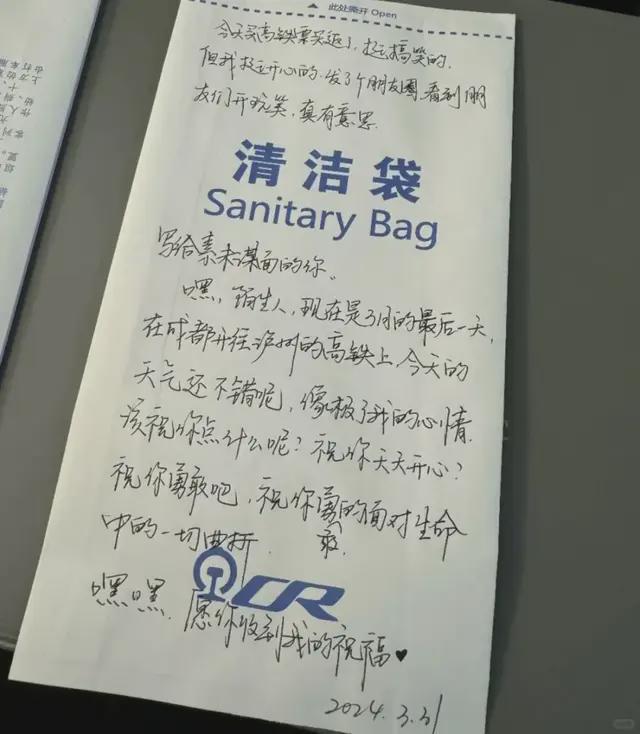 此处撕开 Open
今天买高铁票买返了,挺搞笑的.
但我挺开心的.发了个朋友圈.看到朋
友们开玩笑,真有意思.
清洁袋
Sanitary Bag
写给素未谋面的你.
嘿,陌生人,现在是3月的最后一天,
在成都开往泸州的高铁上,今天的
天气还不错呢,像极了我的心情.
该祝你点什么呢?祝你天天开心?
祝你勇敢吧,祝你勇敢的面对生命
中的一切曲折.
CR
嘿嘿.愿你收到我的祝福♥
2024.3.31